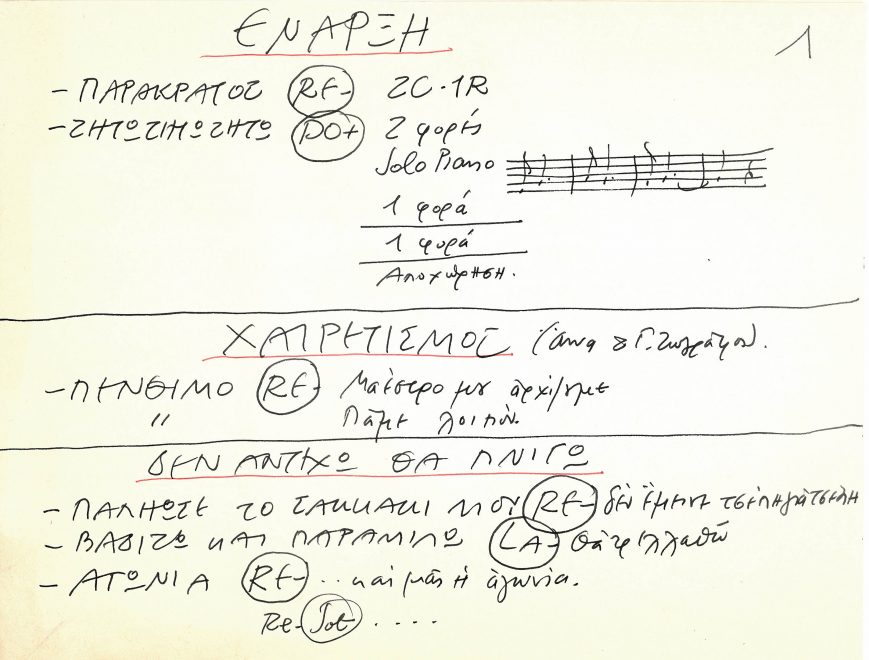 ΕΝΑΡΞΗ
1
- ΠΑΡΑΚΡΑΤΟΣ RE- 2C·1R
- ΖΗΤΩ ΤΙΜΩ ΖΗΤΩ DO+ 2 φορές
Solo Piano
1 φορά
1 φορά
Αποχώρηση.
ΧΑΙΡΕΤΙΣΜΟΣ
- ΠΕΝΘΙΜΟ RE- Μαέστρο μου ἀρχίζουμε
" Πᾶμε λοιπόν.
ΔΕΝ ΑΝΤΕΧΩ ΘΑ ΠΝΙΓΩ
- ΠΑΛΗΩΣΕ ΤΟ ΣΑΚΚΑΚΙ ΜΟΥ RE- δέν ἔμεινε
- ΒΑΔΙΖΩ ΚΑΙ ΠΑΡΑΜΙΛΩ LA- θά τρελλαθῶ
- ΑΓΩΝΙΑ RE- .. καί μᾶς ἡ ἀγωνία.
Re- Sol ....